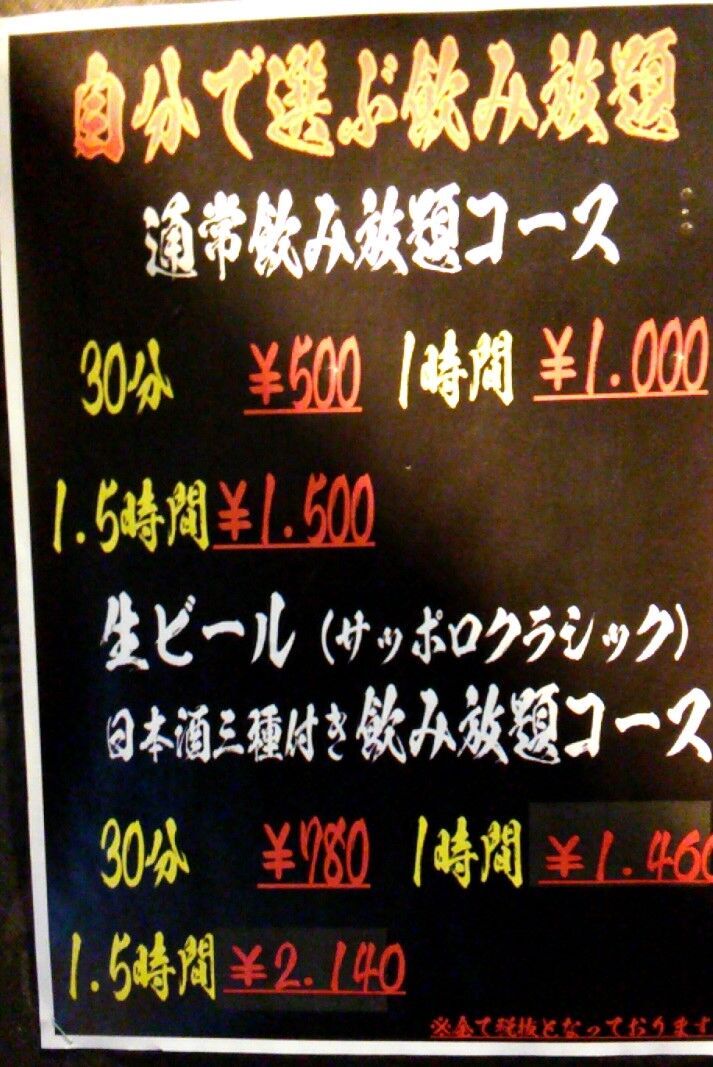 自分で選ぶ飲み放題
通常飲み放題コース
30分 ¥500 1時間 ¥1.000
1.5時間 ¥1.500
生ビール(サッポロクラシック)
日本酒三種付き飲み放題コース
30分 ¥780 1時間 ¥1.460
1.5時間 ¥2.140
※全て税抜となっております